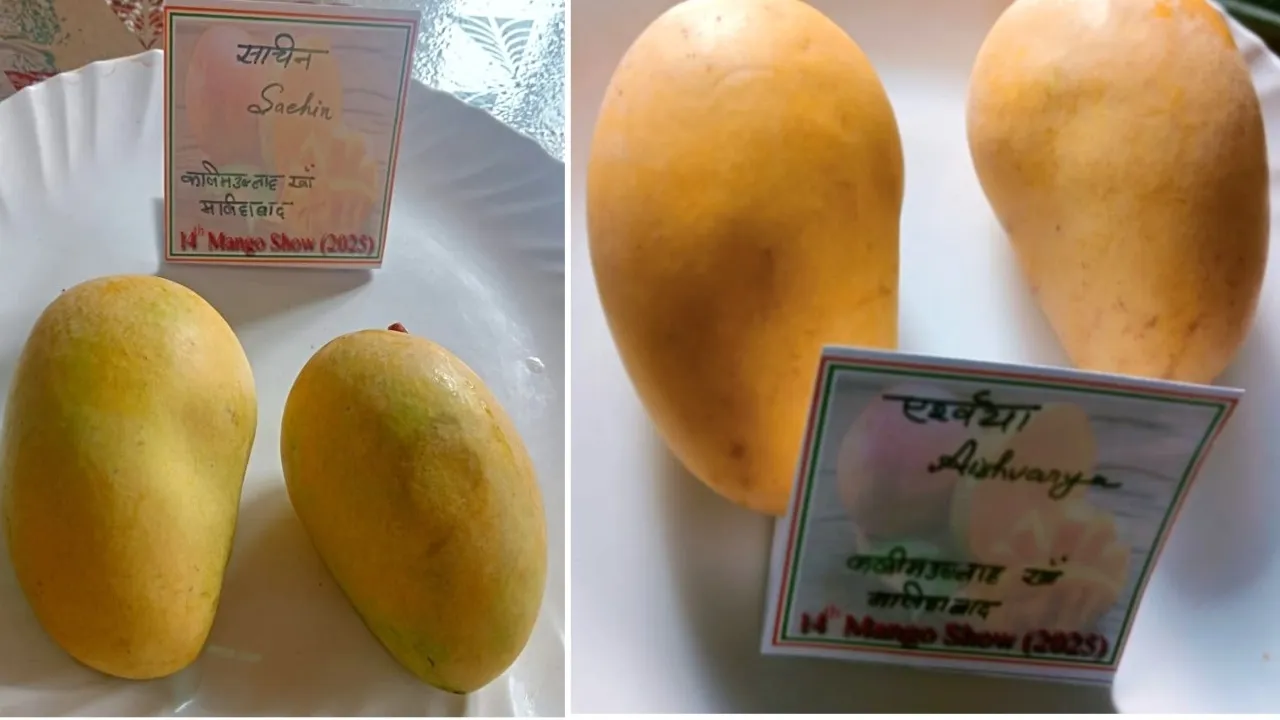 साचीन
Sachin
कलिमउल्लाह खाँ
मलिहाबाद
14th Mango Show (2025)
एश्वर्या
Aishvarya
कलीमउल्लाह खाँ
मलिहाबाद
14th Mango Show (2025)